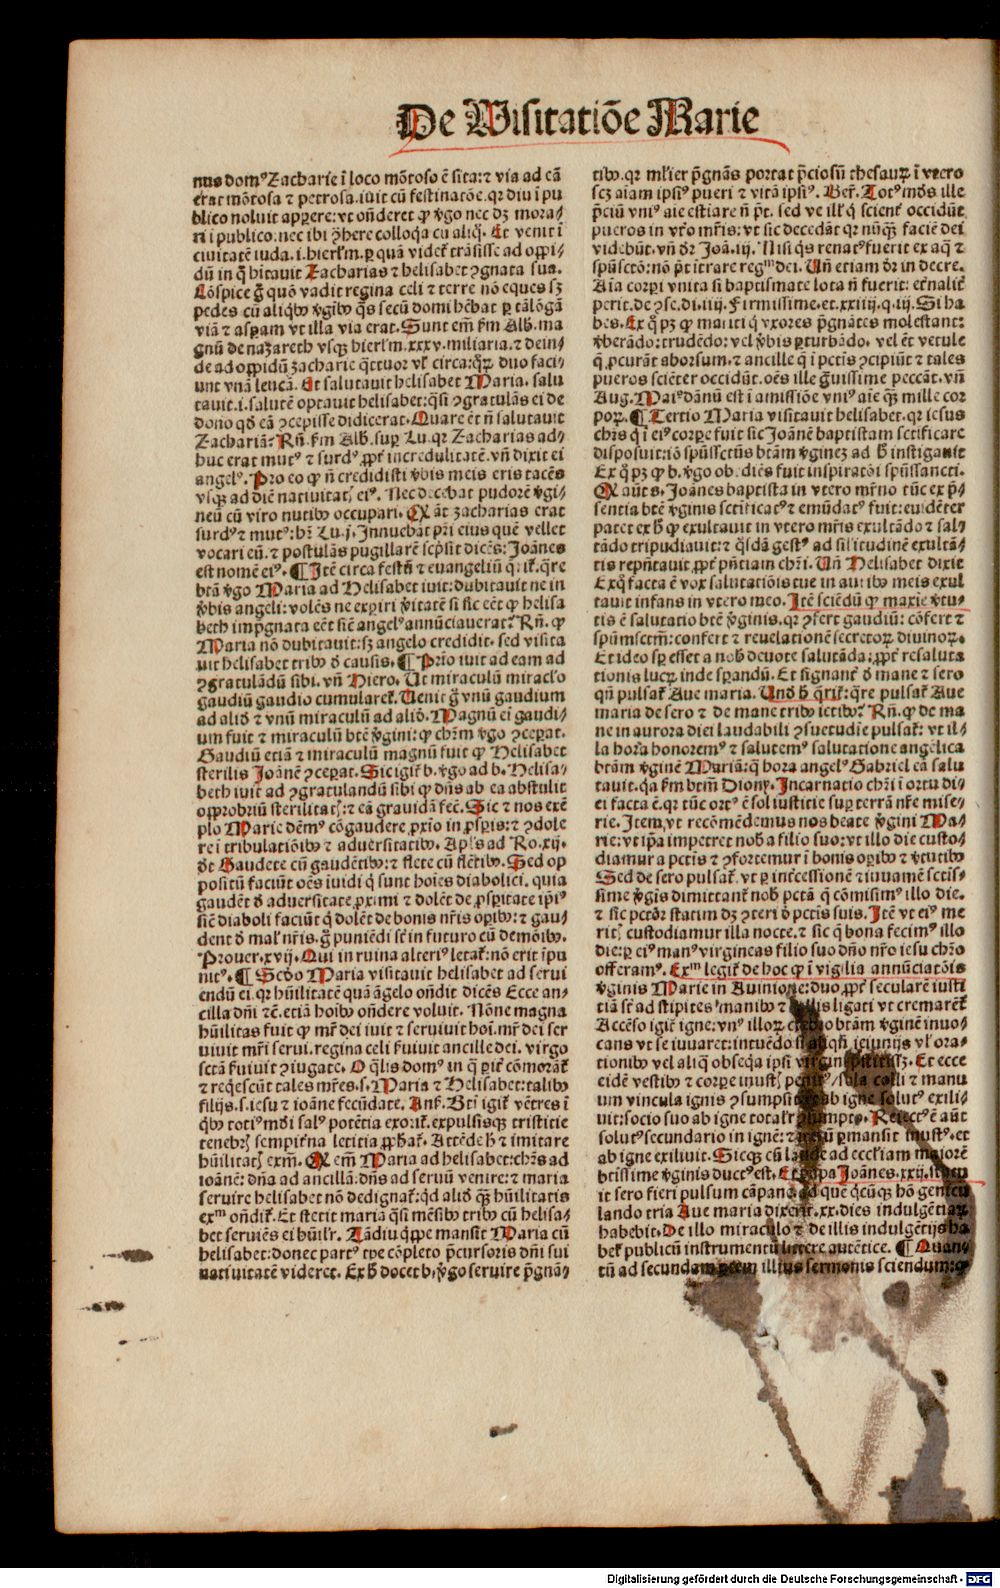 De Uisitatiõe Marie
nus domꝰ Zacharie ĩ loco mõtoso ẽ sita: ⁊ via ad eã
erat mõtosa ⁊ petrosa. iuit cũ festinatõe. qꝛ diu ĩ pu
blico noluit apꝑere: vt oñderet ꝙ ṽgo nec dꝫ mora⸗
ri ĩ publico. nec ibi ꝓhere colloq̃a cũ aliq̃. Et venit ĩ
ciuitatẽ iuda. i. hierl̃m. ꝑ quã videt̃ trãsisse ad oppi⸗
dũ in q̃ hitauit Zacharias ⁊ helisabet ꝯgnata sua.
Cõspice g̃ quõ vadit regina celi ⁊ terre nõ eques sꝫ
pedes cũ aliqͥbꝰ ṽgĩbꝰ q̃s secũ domi hẽbat ꝑ tã lõgã
viã ⁊ asꝑam vt illa via erat. Sunt em̃ ẜm Alb. ma
gnũ de naꝫareth vsqꝫ hierl̃m. xxxv. miliaria. ⁊ dein⸗
de ad oppidũ ꝫacharie q̃ttuor vl̃ circa: qꝝ duo faci⸗
unt vnã leucã. Et salutauit helisabet Maria. salu
tauit. i. salutẽ optauit helisabet: q̃si ꝯgratulãs ei de
dono qď eã ꝯcepisse didicerat. Quare ẽt ñ salutauit
Zachariã? Rñ. ẜm Alb. suꝑ Lu. qꝛ Zacharias ad⸗
huc erat mutꝰ ⁊ surdꝰ ꝓpt̃ incredulitatẽ. vñ dixit ei
angelꝰ. Pro eo ꝙ ñ credidisti ṽbis meis eris tacẽs
vsqꝫ ad diẽ natiuitatꝭ eiꝰ. Nec decebat pudorẽ ṽgi⸗
neũ cũ viro nutibꝰ occupari. Qꝛ aũt zacharias erat
surdꝰ ⁊ mutꝰ: hꝫ Lu. j. Innuebãt pr̃i eius quẽ vellet
vocari eũ. ⁊ postulãs pugillarẽ scp̃sit dicẽs: Joãnes
est nomẽ eiꝰ. ¶ Itẽ circa festũ ⁊ euangeliũ q̃rit̃. q̃re
btã ṽgo Maria ad Helisabet iuit: dubitauit ne in
ṽbis angeli: volẽs ne exꝑiri ṽitatẽ si sic eẽt ꝙ helisa
beth imp̃gnata eẽt sic̃ angelꝰ annũciauerat? Rñ. ꝙ
Maria nõ dubitauit: sꝫ angelo credidit. sed visita
uit helisabet tribꝰ ď causis. ¶ Prĩo iuit ad eam ad
ꝯgratulãdũ sibi. vñ Hiero. Ut miraculũ miracl̃o
gaudiũ gaudio cumularet̃. Uenit g̃ vnũ gaudium
ad aliď ⁊ vnũ miraculũ ad aliď. Magnũ em̃ gaudi⸗
um fuit ⁊ miraculũ btẽ ṽgini: ꝙ chr̃m ṽgo ꝯceꝑat.
Gaudiũ etiã ⁊ miraculũ magnũ fuit ꝙ Helisabet
sterilis Joãnẽ ꝯceꝑat. Sic igit̃ b. ṽgo ad b. Helisa⸗
beth iuit ad ꝯgratulandũ sibi ꝙ dñs ab ea abstulit
opprobriũ sterilitatꝭ: ⁊ eã grauidã fec̃. Sic ⁊ nos exẽ
plo Marie dẽmꝰ cõgaudere ꝓxĩo in ꝓsꝑis: ⁊ ꝯdole
re ĩ tribulatiõibꝰ ⁊ aduersitatibꝰ. Apl̃s ad Ro. xij.
dt̃ Gaudete cũ gaudẽtibꝰ: ⁊ flete cũ flẽtibꝰ. Sed op
positũ faciũt oẽs iuidi q̃ sunt hoĩes diabolici. quia
gaudẽt ď aduersitate ꝓximi ⁊ dolẽt de ꝓsꝑitate ip̃iꝰ
sic̃ diaboli faciũt q̃ dolẽt de bonis nr̃is oꝑibꝰ: ⁊ gau⸗
dent ď mal̃ nr̃is. g̃ puniẽdi st̃ in futuro cũ demõibꝰ.
Prouer. xvij. Qui in ruina alteriꝰ letat̃: nõ erit ĩpu
nitꝰ. ¶ Scďo Maria visitauit helisabet ad serui
endũ ei. qꝛ hũilitatẽ quã ãgelo oñdit dicẽs Ecce an⸗
cilla dñi ⁊c̃. etiã hoĩbꝰ oñdere voluit. Nõne magna
hũilitas fuit ꝙ mr̃ dei iuit ⁊ seruiuit hoĩ. mr̃ dei ser
uiuit mr̃i serui. regina celi ẜuiuit ancille dei. virgo
sctã ẜuiuit ꝯiugate. O q̃lis domꝰ in q̃ ꝑit̃ cõmorãt̃
⁊ req̃escũt tales mr̃es. s. Maria ⁊ Helisabet: talibꝰ
filijs. s. iesu ⁊ ioãne fecũdate. Ans̃. Bti igit̃ vẽtres ĩ
qͥbꝰ totiꝰ mďi salꝰ potẽtia exorit̃. expulsisqꝫ tristicie
tenebꝭ sempit̃na leticia ꝓphat̃. Attẽde h̃ ⁊ imitare
hũilitatꝭ exm̃. Qꝛ em̃ Maria ad helisabet: chr̃s ad
ioãnẽ: dña ad ancillã. dñs ad seruũ venire: ⁊ maria
seruire helisabet nõ dedignat̃: qď aliď qꝫ hũilitatis
exᵐ oñdit̃. Et stetit maria q̃si mẽsibꝰ tribꝰ cũ helisa⸗
bet seruiẽs ei hũilr̃. Tãdiu q̃ppe mansit Maria cũ
helisabet: donec partꝰ tpe cõpleto p̃cursoris dñi sui
natiuitatẽ videret. Ex h̃ docet b. ṽgo seruire p̃gnã⸗
tibꝰ. qꝛ ml̃ier p̃gnãs portat p̃ciosũ thesauꝝ ĩ vtero
scꝫ aĩam ipsiꝰ pueri ⁊ vitã ipsiꝰ. Ber̃. Totꝰ mďs ille
p̃ciũ vniꝰ aĩe estiare ñ p̃t. sed ve ill̃ q̃ scient̃ occidũt
pueros in vt̃o mr̃is: vt sic decedãt qꝛ nũqꝫ faciẽ dei
videbũt. vñ dr̃ Joã. iij. Nisi q̃s renatꝰ fuerit ex aq̃ ⁊
spũsctõ: nõ p̃t ĩtrare regᵐ dei. Uñ etiam dr̃ in decre.
Aĩa corpi vnita si baptismate lota ñ fuerit: et̃nalit̃
perit. de ꝯse. di. iiij. Firmissime. et. xxiiij. q. iij. Si ha
bes. Ex q̃ pꝫ ꝙ mariti q̃ vxores p̃gnãtes molestant:
ṽberãdo: trudẽdo: vel ṽbis ꝑturbãdo. vel ẽt vetule
q̃ ꝓcurãt aborsum. ⁊ ancille q̃ ĩ pctĩs ꝯcipiũt ⁊ tales
pueros sciẽter occidũt. oẽs ille g̃uissime peccãt. vñ
Aug. Maiꝰ dãnũ est ĩ amissiõe vniꝰ aĩe q̃ꝫ mille cor
poꝝ. ¶ Tertio Maria visitauit helisabet. qꝛ iesus
chr̃s q̃ ĩ eiꝰ corꝑe fuit sic Joãnẽ baptistam sctificare
disposuit: iõ spũssctũs btãm ṽgineꝫ ad h̃ instigauit
Ex q̃ pꝫ ꝙ b. ṽgo obediẽs fuit inspiratõi spũssancti.
Qꝛ aũt s. Joãnes baptista in vtero mr̃no tũc ex p̃⸗
sentia btẽ ṽginis sctificatꝰ ⁊ emũdatꝰ fuit: euidẽter
patet ex h̃ ꝙ exultauit in vtero mr̃is exultãdo ⁊ sal⸗
tãdo tripudiauit: ⁊ q̃sdã gestꝰ ad sil̃itudinẽ exultã⸗
tis rep̃ntauit ꝓpt̃ p̃ntiam chr̃i. Uñ Helisabet dixit
Ex q̃ facta ẽ vox salutatiõis tue in auribꝰ meis exul
tauit infans in vtero meo. Itẽ sciẽdũ ꝙ maxie ṽtu⸗
tis ẽ salutatio btẽ ṽginis. qꝛ ꝯfert gaudiũ: cõfert ⁊
spũmsctm̃: confert ⁊ reuelationẽ secretoꝝ diuinoꝝ.
Et ideo sꝑ esset a nob̃ deuote salutãda: ꝓpt̃ resaluta
tionis lucꝝ inde sꝑandũ. Et signant̃ ď mane ⁊ sero
qñ pulsat̃ Aue maria. Unď h̃ q̃rit̃: q̃re pulsat̃ Aue
maria de sero ⁊ de mane tribꝰ ictibꝰ? Rñ. ꝙ de ma
ne in aurora diei laudabili ꝯsuetudĩe pulsat̃: vt il⸗
la hora honoremꝰ ⁊ salutemꝰ salutatione angelica
btãm ṽginẽ Mariã: q̃ hora angelꝰ Gabriel eã salu
tauit. q̃a ẜm btm̃ Diony. Incarnatio chr̃i ĩ ortu di⸗
ei facta ẽ. qꝛ tũc ortꝰ ẽ sol iusticie suꝑ terrã nr̃e mise⸗
rie. Item. vt recõmẽdemus nos beate ṽgini Ma⸗
rie: vt ip̃a impetret nob̃ a filio suo: vt illo die custo⸗
diamur a pctĩs ⁊ ꝯfortemur ĩ bonis oꝑibꝰ ⁊ ṽtutibꝰ
Sed de sero pulsat̃. vt ꝑ int̃cessionẽ ⁊ iuuamẽ sctis⸗
sime ṽgĩs dimittant̃ nob̃ pctã q̃ cõmisimꝰ illo die.
⁊ sic pctõr statim dꝫ ꝯteri ď pctĩs suis. Itẽ vt eiꝰ me
ritꝭ custodiamur illa nocte. ⁊ sic q̃ bona fecimꝰ illo
die: ꝑ eiꝰ manꝰ virgineas filio suo dño nr̃o iesu chr̃o
offeramꝰ. Exᵐ legit̃ de hoc ꝙ ĩ vigilia annũciatõis
ṽginis Marie in Auinione: duo ꝓpt̃ secularẽ iusti
tiã st̃ ad stipites manibꝰ ⁊ collis ligati vt cremarẽt̃
Accẽso igit̃ igne: vnꝰ illoꝝ btãm ṽginẽ inuo⸗
cans vt se iuuaret: intuẽdo si aliqñ ieiunijs vl̃ ora⸗
tionibꝰ vel aliq̃ obseq̃a ipsi virgini . Et ecce
eidẽ vestibꝰ ⁊ corꝑe inustꝭ sola colli ⁊ manu
um vincula ignis ꝯsumpsit ab igne solutꝰ exili⸗
uit: socio suo ab igne totalr̃ ꝯsumpto. Reiectꝰ ẽ aũt
solutꝰ secundario in ignẽ: ⁊ ꝑmansit inustꝰ. et
ab igne exiliuit. Sicqꝫ cũ laude ad eccl̃iam maiorẽ
btissime ṽginis ductꝰ est. Et papa Joãnes. xxij. statu
it sero fieri pulsum cãpane. ad quẽ q̃cũqꝫ hõ genicu
lando tria Aue maria dixerit. xx. dies indulgẽtiaꝝ
habebit. De illo miraculo ⁊ de illis indulgẽtijs ha
bet̃ publicũ instrumentũ littere autẽtice. ¶ Quan⸗
tũ ad secundam ptem illius sermonis sciendum: ꝙ
Digitalisierung gefördert durch die Deutsche Forschungsgemeinschaft - DFG